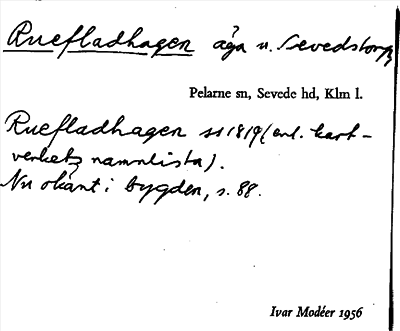 Ruefladhagen äga u. Sevedstorp
Pelarne sn, Sevede hd, Klm l.
Ruefladhagen ss 1819 (enl. kart-
verkets namnlista).
Nu okänt i bygden, s. 88.
Ivar Modéer 1956